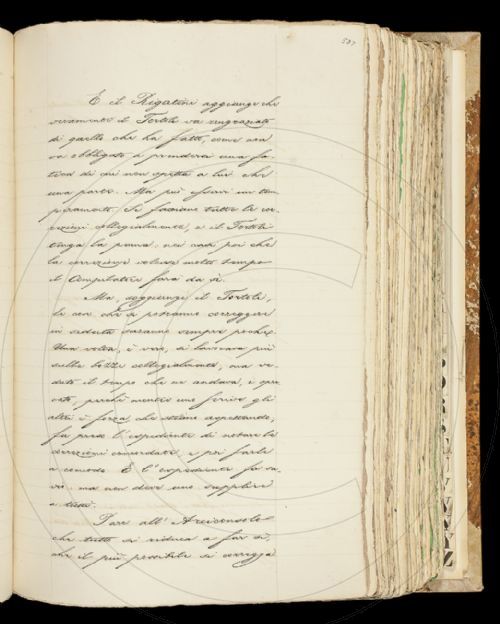 507
E il Rigatini aggiunge che
veramente il Tortoli va ringraziato
di quello che ha fatto, come non
va obbligato a prendersi una fa-
tica di cui non spetta a lui che
una parte. Ma può esservi un tem-
peramento. Si facciano tutte le cor-
rezioni collegialmente, e il Tortoli
tenga la penna, nei casi poi che
la correzione volesse molto tempo
il Compilatore farà da sè.
Ma, soggiunge il Tortoli,
le cose che si potranno correggere
in seduta saranno sempre poche.
Una volta, è vero, si lavorava più
sulle bozze collegialmente, ma ve-
duto il tempo che ne andava, e spre-
cato, perchè mentre uno scrive gli
altri è forza che stiano aspettando,
fu preso l'espediente di notare le
correzioni concordate, e poi farle
a comodo. E l'espediente fu sa-
vio: ma non deve uno supplire
a tutti.
Pare all' Arciconsolo
che tutto si riduca a far sì,
che il più possibile si corregga